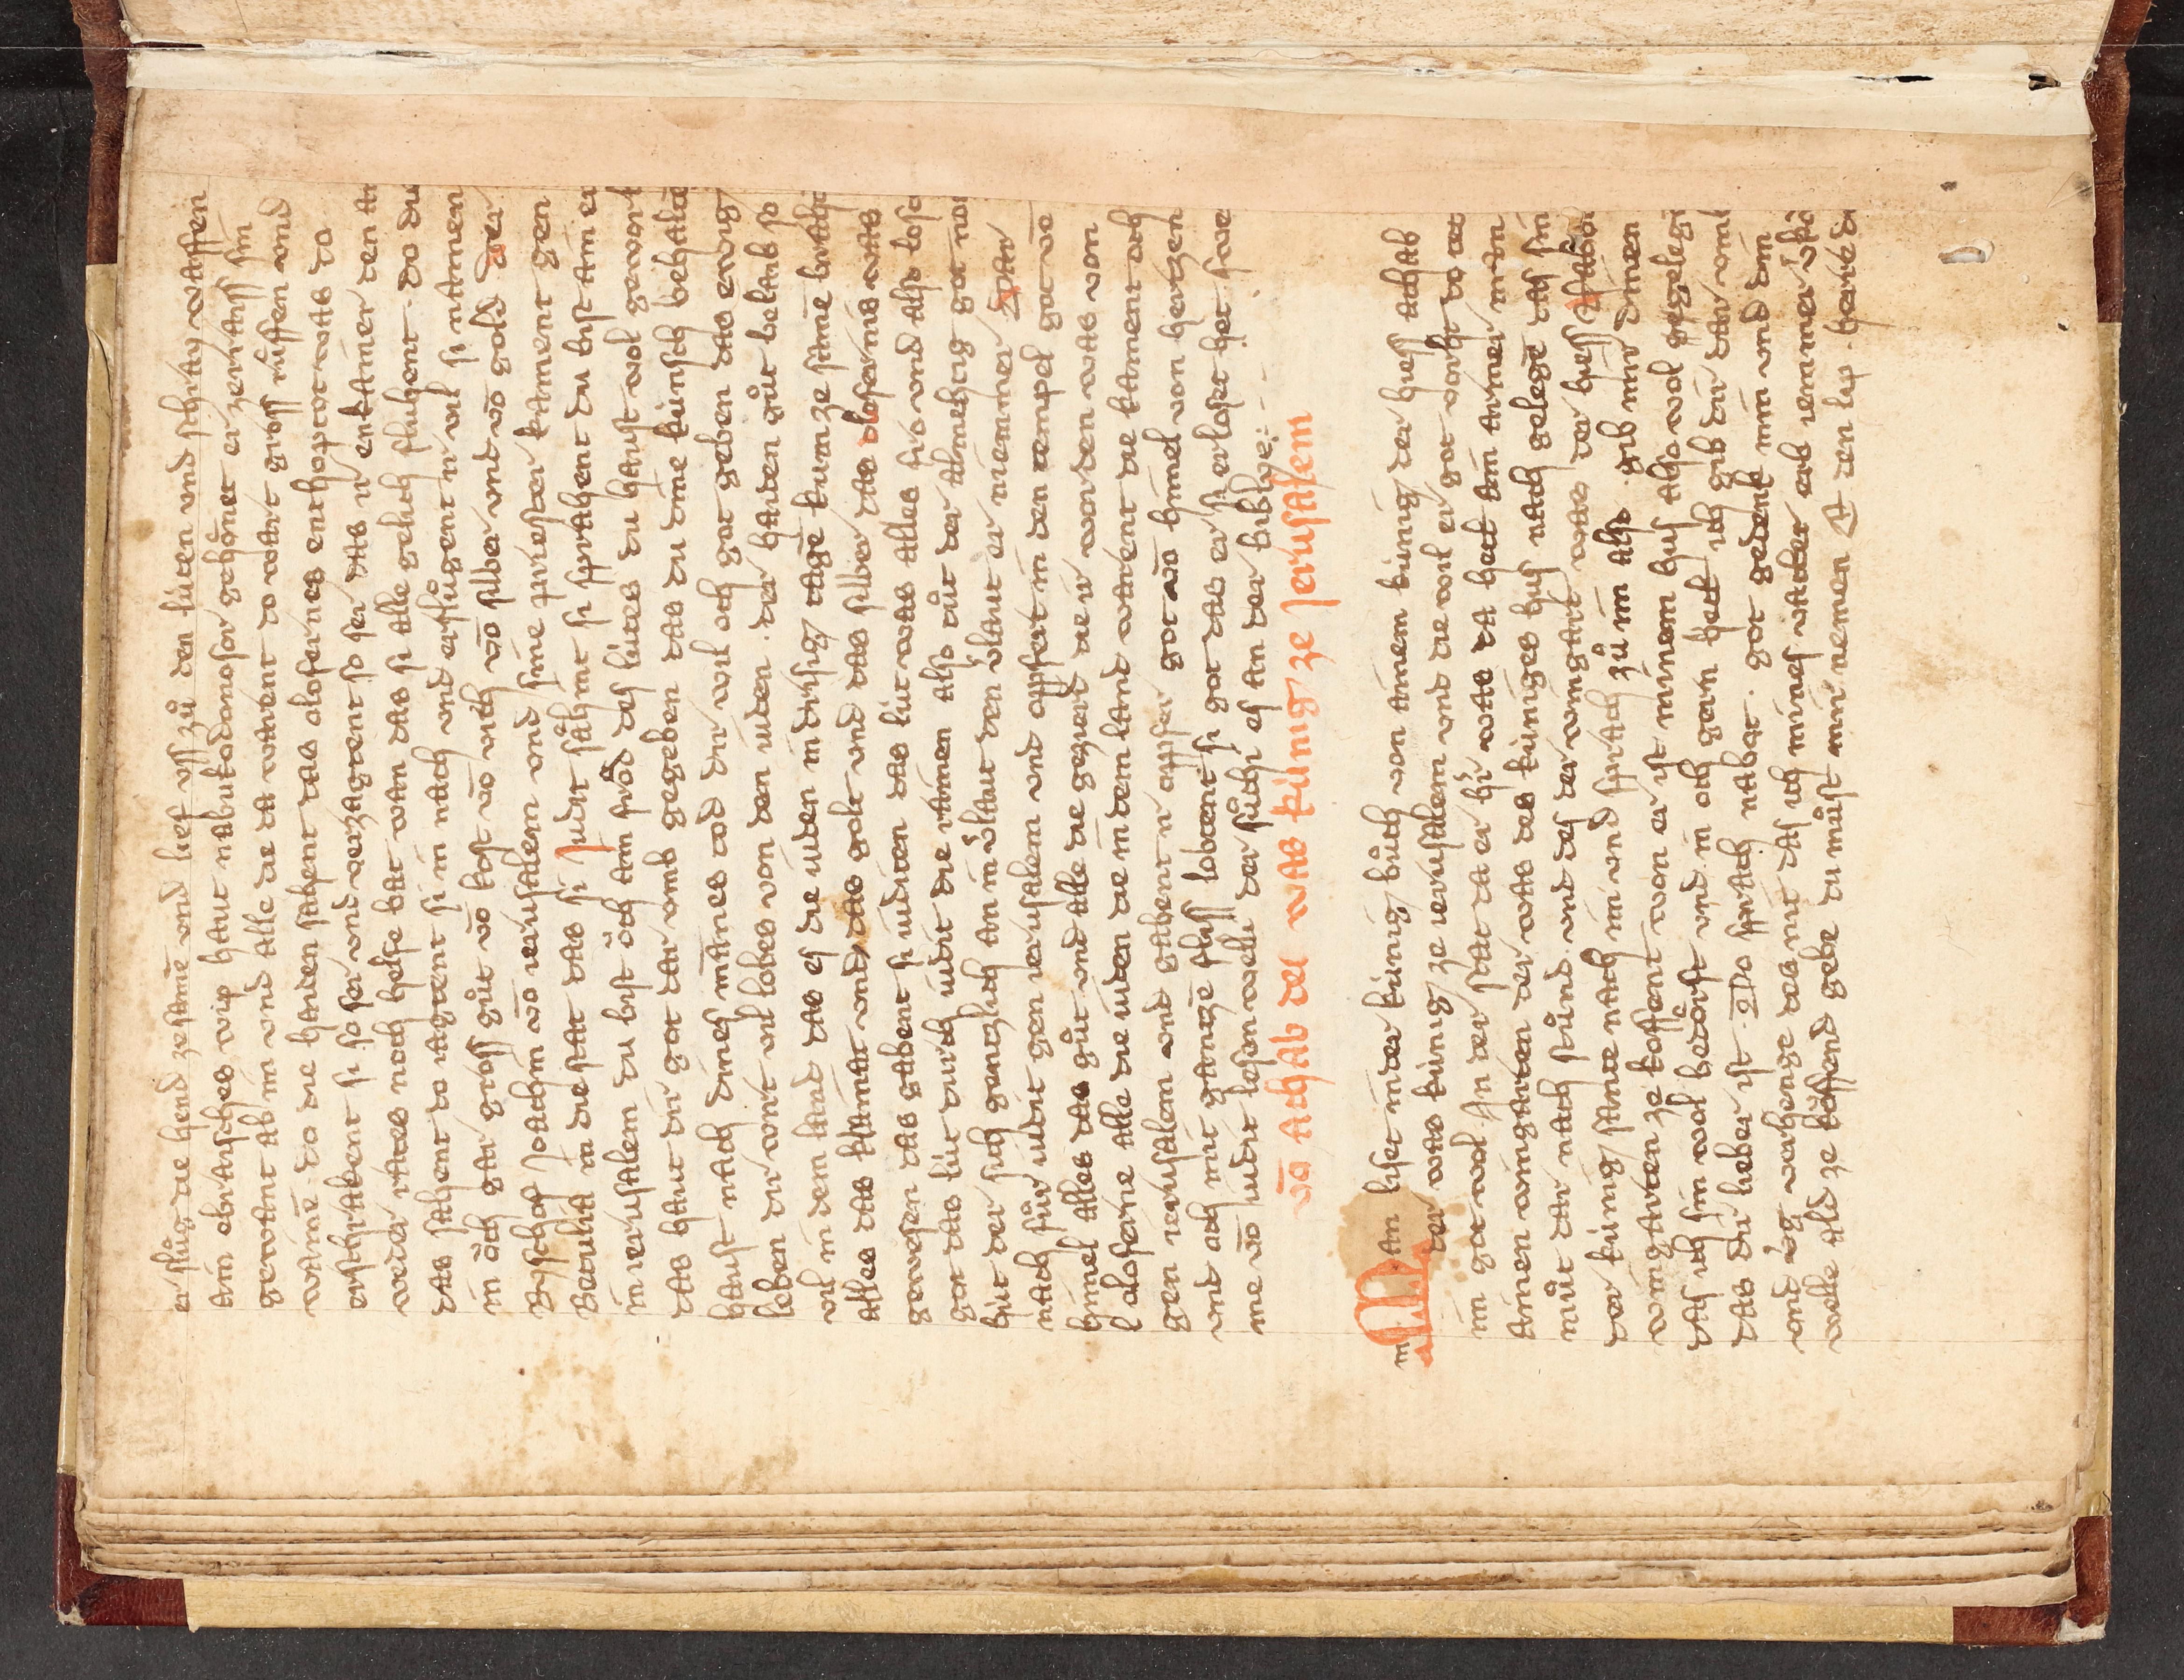 er slůg die hend zesamē vnd lief vss zů den lúten vnd schray waffen
ain ebraisches wip haut nabukodonosor gehônet er zerraiss sin
gewant ab im vnd alle die da warent do wart gross růffen vnd
wainē do die haiden sahent das olofernes enthoptot was do
erschrakent si so ser vnd verzagtent so ser das ir enkainer den an
weder rates noch helfe bat wan das si alle gelich fluhent do du
das sahent do iagtent si in nach vnd erslůgent ir vil si namen
in ôch gar gross gůt vō kost vō vich vō silber vnd vō gold der
Byschof Joachim vō ierusalem vnd sine priester kament gen
Betulia in die stat das si Judit sāhint si sprachent du bist ain er
in ierusalem du bist ôch ain frôd des lútes du haust wol gewort
das haut dir got dar vmb gegeben das du dine kúnsch behalte
haust nach dines mānes tod dir wil och got geben das ewig
leben dir wirt vil lobes von den iuden . der haiden gůt belaib so
vil in dem land das es die iuden in drisig tage kum ze samē brach
alles das klainat vnd das golt vnd das silber das olofernis was
gewesen das gabent si iuditen das lút was alles fro vnd also losc
got das lút durch iudit die rainen also důt der almehtig got noi
hút der sich gentzlich an in v̂laut den v̂laut er niemmer Dar
nach fůr iudit gen ierusalem vnd opffert in den tempel got vō
himel alles das gůt vnd alle die gezierd die ir worden was von
l oloferne alle die iuden die in dem land warent die kament och
gen ierusalem vnd gabent ir opffer got vō himel von hertzen
vnd och mit gantzē flaiss lobtent si got das er si erloset hat swe
me vō iudit lesen welle der sůch es an der biblye
vō achab der was kúnig ze Jerusalem
Man liset in der kúnig bůch von ainem kúnig der hiess achab
der was kúnig ze ierusalem vnd die wil er got vorht do tet
im got wol An der stat da er bi was da het ain armer mā
ainen wingarten der was des kúniges hus nach gelegē das sin
můt dar nach stůnd vnd des der wingart was der hiess Nabot
der kúnig sante nach im vnd sprach zů im also gib mir dinen
wingarten ze koffent won er ist minem hus also wol gelege
das ich sin wol bedôrft vnd in och gern het ich gib dir dar vm
das dir lieber ist Do sprach nabot . got gedenk min vnd din
vnd v̂g verhenge des nit das ich mines vatter erb iemmer v̂kô
welle ald ze kôffend gebe du můst mir nemen den lip